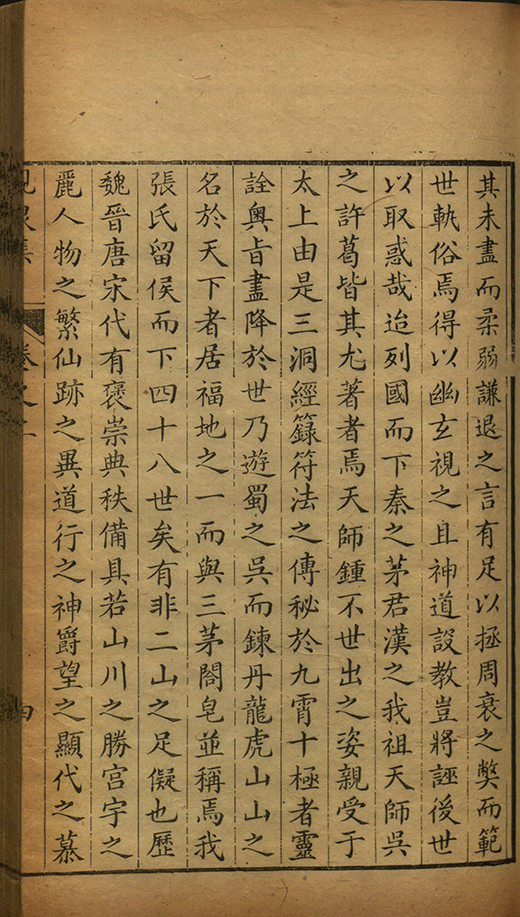 其未盡而柔弱謙退之言有足以拯周衰之獘而範
世軌俗焉得以幽玄視之且神道設教豈將誣後世
以取惑哉迨列國而下秦之茅君漢之我祖天師吳
之許葛皆其尤著者焉天師鍾不世出之姿親受于
太上由是三洞經籙符法之傳秘於九霄十極者靈
詮奧旨盡降於世乃遊蜀之吳而鍊丹龍虎山山之
名於天下者居福地之一而與三茅閤皂並稱焉我
張氏留侯而下四十八世矣有非二山之足儗也歷
魏晉唐宋代有褒崇典秩備具若山川之勝宮宇之
麗人物之繁仙跡之異道行之神爵望之顯代之慕
泉集 卷之二